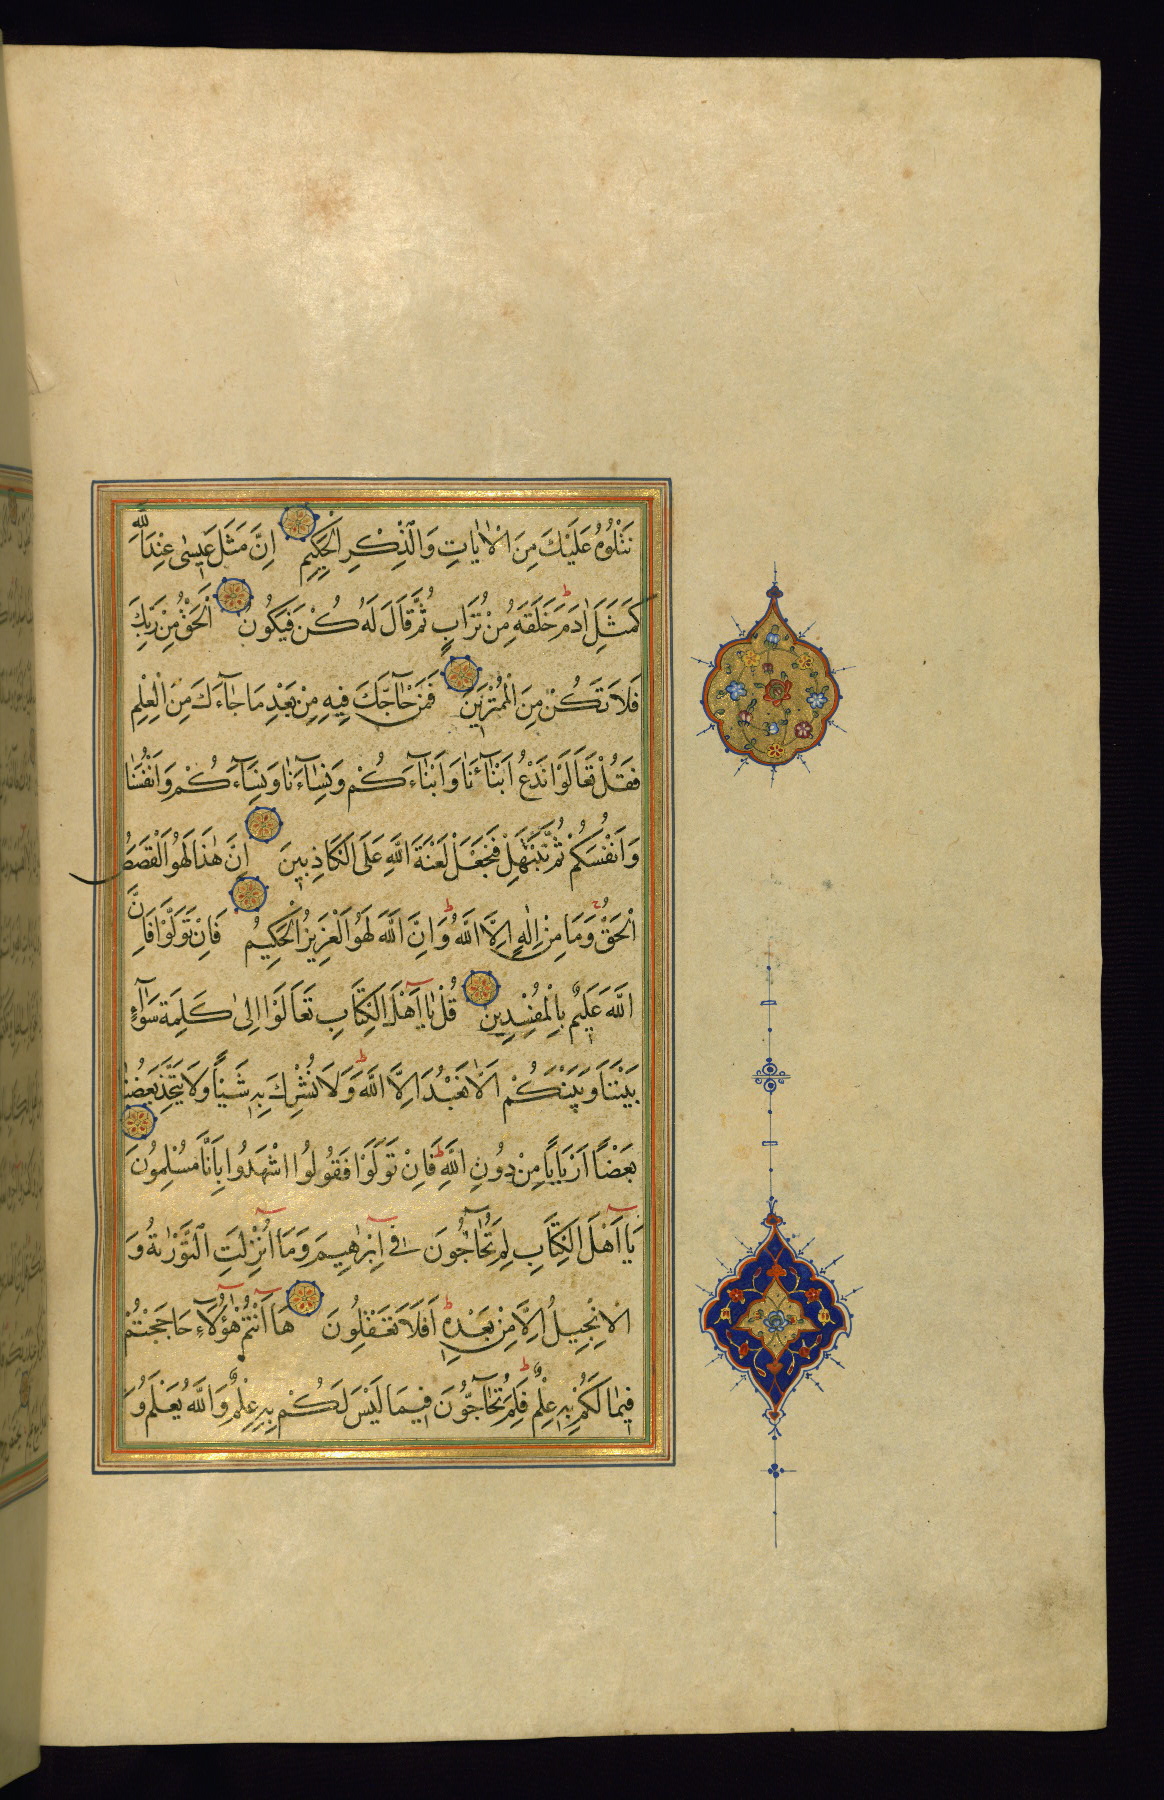 نَتْلُوهُ عَلَيْكَ مِنَ الْاٰيَاتِ وَالذِّكْرِ الْحَكِيمِ اِنَّ مَثَلَ عِيسٰى عِنْدَ اللّٰهِ
كَمَثَلِ اٰدَمَ خَلَقَهُ مِنْ تُرَابٍ ثُمَّ قَالَ لَهُ كُنْ فَيَكُونُ اَلْحَقُّ مِنْ رَبِّكَ
فَلَا تَكُنْ مِنَ الْمُمْتَرِينَ فَمَنْ حَآجَّكَ فِيهِ مِنْ بَعْدِ مَا جَآءَكَ مِنَ الْعِلْمِ
فَقُلْ تَعَالَوْا نَدْعُ اَبْنَآءَنَا وَاَبْنَآءَكُمْ وَنِسَآءَنَا وَنِسَآءَكُمْ وَاَنْفُسَنَا
وَاَنْفُسَكُمْ ثُمَّ نَبْتَهِلْ فَنَجْعَلْ لَعْنَةَ اللّٰهِ عَلَى الْكَاذِبِينَ اِنَّ هٰذَا لَهُوَ الْقَصَصُ
الْحَقُّ وَمَا مِنْ اِلٰهٍ اِلَّا اللّٰهُ وَاِنَّ اللّٰهَ لَهُوَ الْعَزِيزُ الْحَكِيمُ فَاِنْ تَوَلَّوْا فَاِنَّ
اللّٰهَ عَلِيمٌ بِالْمُفْسِدِينَ قُلْ يَا اَهْلَ الْكِتَابِ تَعَالَوْا اِلٰى كَلِمَةٍ سَوَآءٍ
بَيْنَنَا وَبَيْنَكُمْ اَلَّا نَعْبُدَ اِلَّا اللّٰهَ وَلَا نُشْرِكَ بِهِ شَيْئًا وَلَا يَتَّخِذَ بَعْضُنَا
بَعْضًا اَرْبَابًا مِنْ دُونِ اللّٰهِ فَاِنْ تَوَلَّوْا فَقُولُوا اشْهَدُوا بِاَنَّا مُسْلِمُونَ
يَا اَهْلَ الْكِتَابِ لِمَ تُحَآجُّونَ فِي اِبْرٰهِيمَ وَمَا اُنْزِلَتِ التَّوْرٰيةُ وَ
الْاِنْجِيلُ اِلَّا مِنْ بَعْدِهِ اَفَلَا تَعْقِلُونَ هَا اَنْتُمْ هٰؤُلَاءِ حَاجَجْتُمْ
فِيمَا لَكُمْ بِهِ عِلْمٌ فَلِمَ تُحَآجُّونَ فِيمَا لَيْسَ لَكُمْ بِهِ عِلْمٌ وَاللّٰهُ يَعْلَمُ وَ